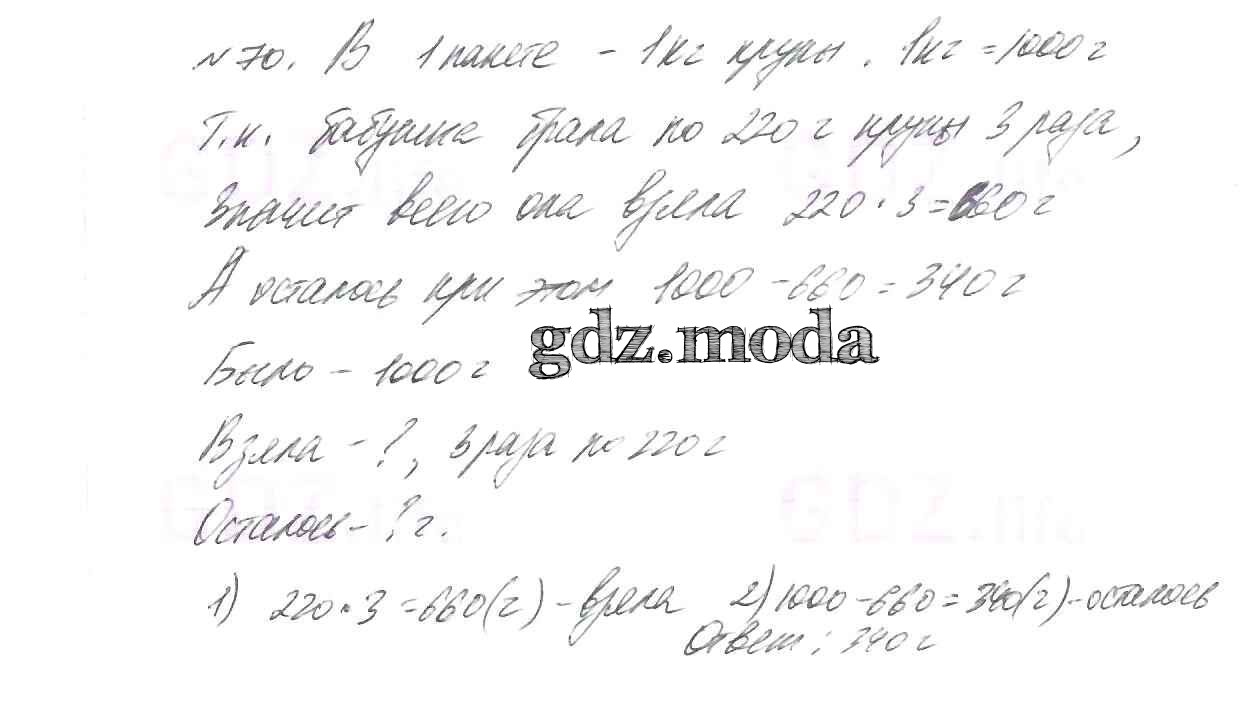 №70. В 1 пакете - 1 кг крупы. 1 кг = 1000 г
Т.к. бабушка брала по 220 г крупы 3 раза,
Значит всего она взяла 220·3=660 г
А осталось при этом 1000 - 660 = 340 г
gdz.moda
Было - 1000 г
Взяла - ?, 3 раза по 220 г
Осталось - ? г.
1) 220·3 = 660 (г) - взяла 2) 1000 - 660 = 340 (г) - осталось
Ответ: 340 г